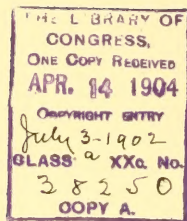 THE LIBRARY OF
CONGRESS,
ONE COPY RECEIVED
APR. 14 1904
COPYRIGHT ENTRY
July 3-1902
CLASS a XXc. No.
38250
COPY A.